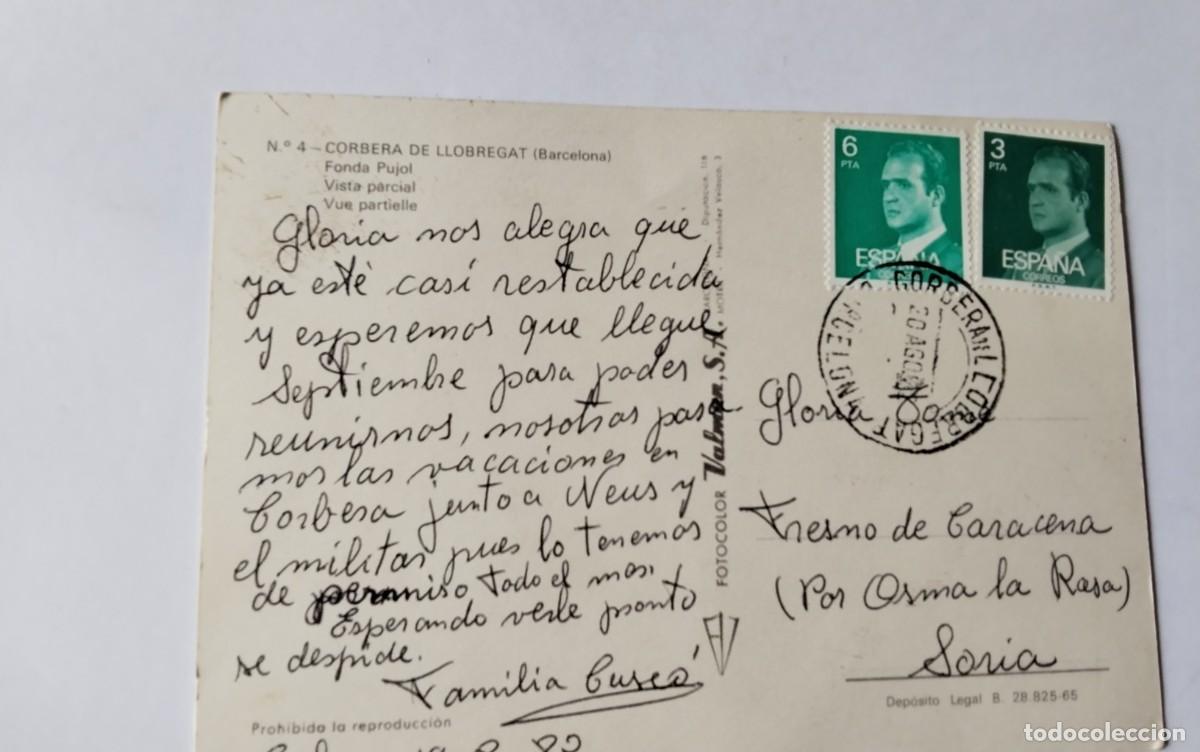 N.º 4 - CORBERA DE LLOBREGAT (Barcelona)
Fonda Pujol
Vista parcial
Vue partielle
Gloria nos alegra que
ya esté casí restablecida
y esperemos que llegue
Septiembre para poder
reunirnos, nosotros pasa
mos las vacaciones en
Corbera junto a Neus y
el militar pues lo tenemos
de permiso todo el mes.
Esperando verle pronto
se despide.
Familia Cuscó
Prohibida la reproducción
FOTOCOLOR Valman, S.A.
6
PTA
ESPAÑA
CORREOS
3
PTA
ESPAÑA
CORREOS
20 AGO
Gloria
Fresno de Caracena
(Por Osma la Rasa)
Soria
Depósito Legal B. 28.825-65
todocoleccion